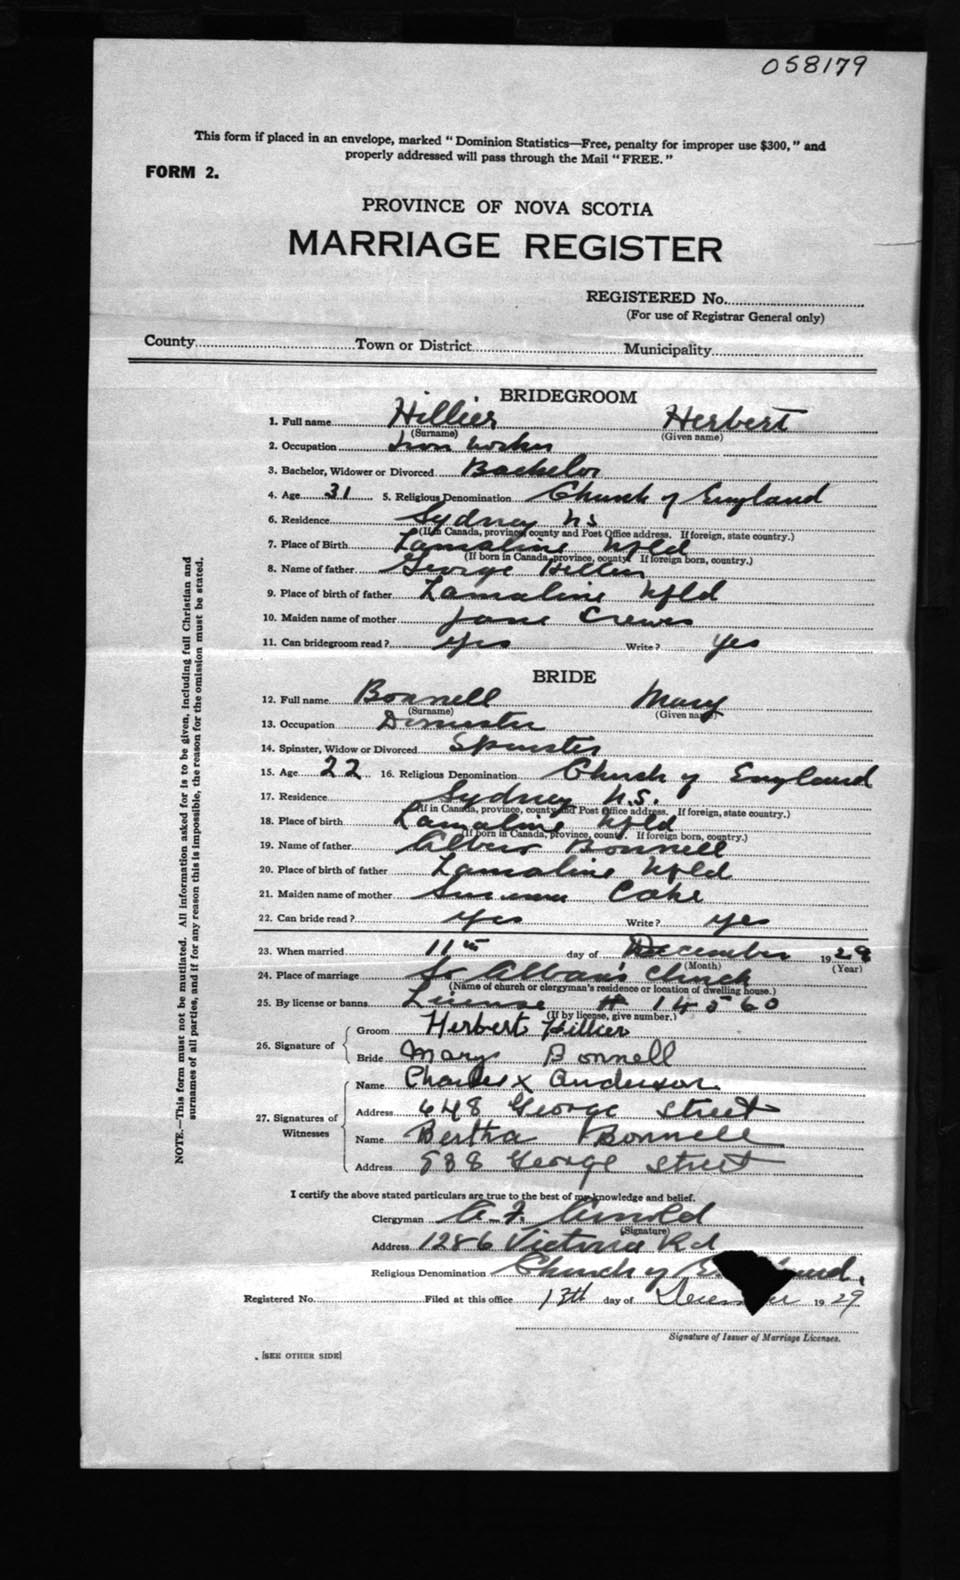 058179
This form if placed in an envelope, marked "Dominion Statistics—Free, penalty for improper use $300," and
properly addressed will pass through the Mail "FREE."
FORM 2.
PROVINCE OF NOVA SCOTIA
MARRIAGE REGISTER
REGISTERED No.
(For use of Registrar General only)
County Town or District Municipality
BRIDEGROOM
1. Full name Hillier Herbert
(Surname) (Given name)
2. Occupation Iron worker
3. Bachelor, Widower or Divorced Bachelor
4. Age 31 5. Religious Denomination Church of England
6. Residence Sydney NS
(If in Canada, province, county and Post Office address. If foreign, state country.)
7. Place of Birth Lamaline Nfld
(If born in Canada, province, county. If foreign born, country.)
8. Name of father George Hillier
9. Place of birth of father Lamaline Nfld
10. Maiden name of mother Jane Crews
11. Can bridegroom read? Yes Write? Yes
BRIDE
12. Full name Bonnell Mary
(Surname) (Given name)
13. Occupation Domestic
14. Spinster, Widow or Divorced Spinster
15. Age 22 16. Religious Denomination Church of England
17. Residence Sydney N.S.
(If in Canada, province, county and Post Office address. If foreign, state country.)
18. Place of birth Lamaline Nfld
(If born in Canada, province, county. If foreign born, country.)
19. Name of father Albert Bonnell
20. Place of birth of father Lamaline Nfld
21. Maiden name of mother Cake
22. Can bride read? Yes Write? Yes
23. When married 11th day of December 1929
(Month) (Year)
24. Place of marriage St Alban's Church
(Name of church or clergyman's residence or location of dwelling house.)
25. By license or banns License # 14560
(If by license, give number.)
26. Signature of Groom Herbert Hillier
Bride Mary Bonnell
27. Signatures of Witnesses Name Charles x Anderson
Address 648 George Street
Name Bertha Bonnell
Address 588 George Street
I certify the above stated particulars are true to the best of my knowledge and belief.
Clergyman A. F. Arnold
(Signature)
Address 1286 Victoria Rd
Religious Denomination Church of England.
Registered No. Filed at this office 13th day of December 1929
Signature of Issuer of Marriage Licenses.
[SEE OTHER SIDE]
NOTE.—This form must not be mutilated. All information asked for is to be given, including full Christian and
surnames of all parties, and if for any reason this is impossible, the reason for the omission must be stated.